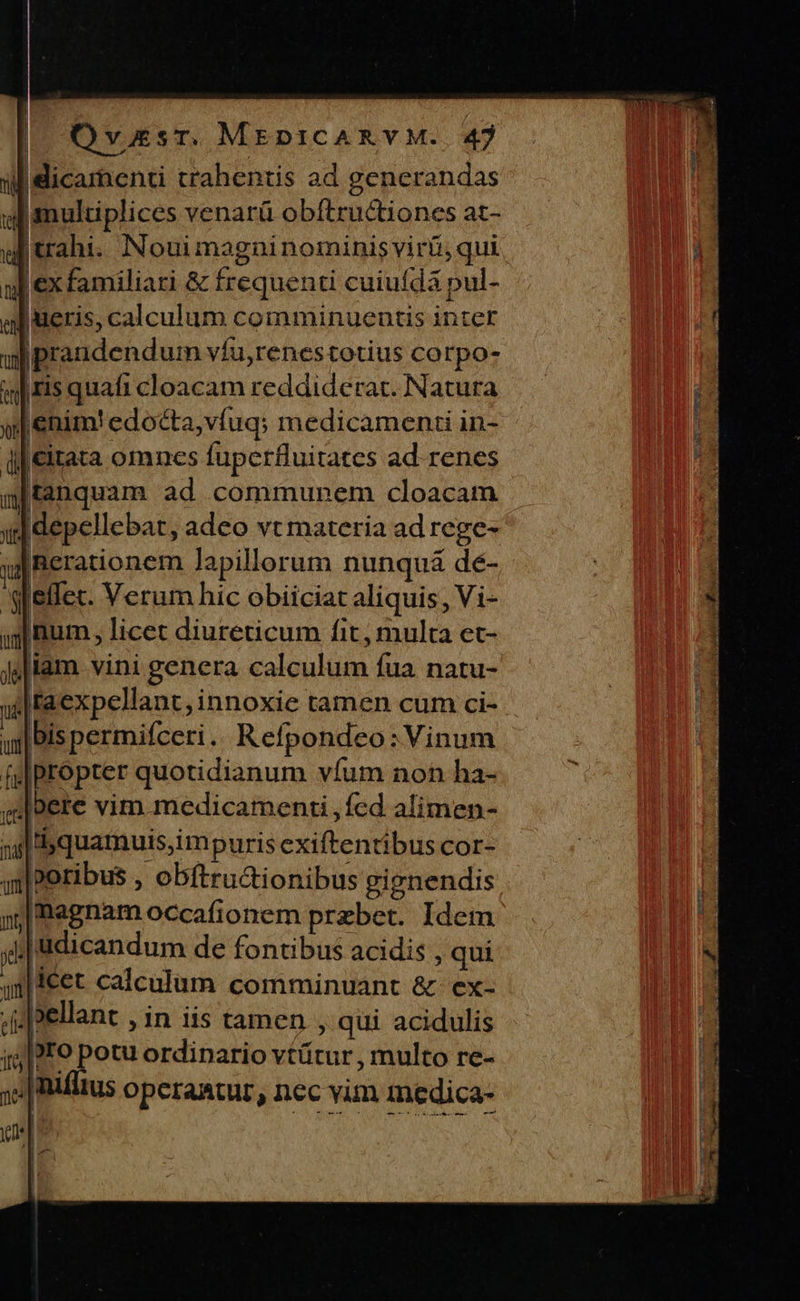 QVÆST. MEDICARVM. 47
dicamenti trahentis ad generandas
multiplices venarū obſtructiones at-
trahi. Noui magni nominis virū, qui
ex familiari & frequenti cuiuſdā pul-
ueris, calculum comminuentis inter
prandendum vſu, renes totius corpo-
ris quaſi cloacam reddiderat. Natura
enim edocta, vſuq; medicamenti in-
citata omnes ſuperfluitates ad renes
tanquam ad communem cloacam
depellebat, adeo vt materia ad rege-
nerationem lapillorum nunquā de-
eſſet. Verum hic obiiciat aliquis, Vi-
num, licet diureticum ſit, multa et-
iam vini genera calculum ſua natu-
ra expellant, innoxie tamen cum ci-
bis permiſceri. Reſpondeo: Vinum
propter quotidianum vſum non ha-
bere vim medicamenti, ſed alimen-
ti, quamuis, impuris exiſtentibus cor-
poribus, obſtructionibus gignendis
magnam occaſionem præbet. Idem
udicandum de fontibus acidis, qui
icet calculum comminuant & ex-
pellant, in iis tamen, qui acidulis
pro potu ordinario vtūtur, multo re-
miſſius operantur, nec vim medica-